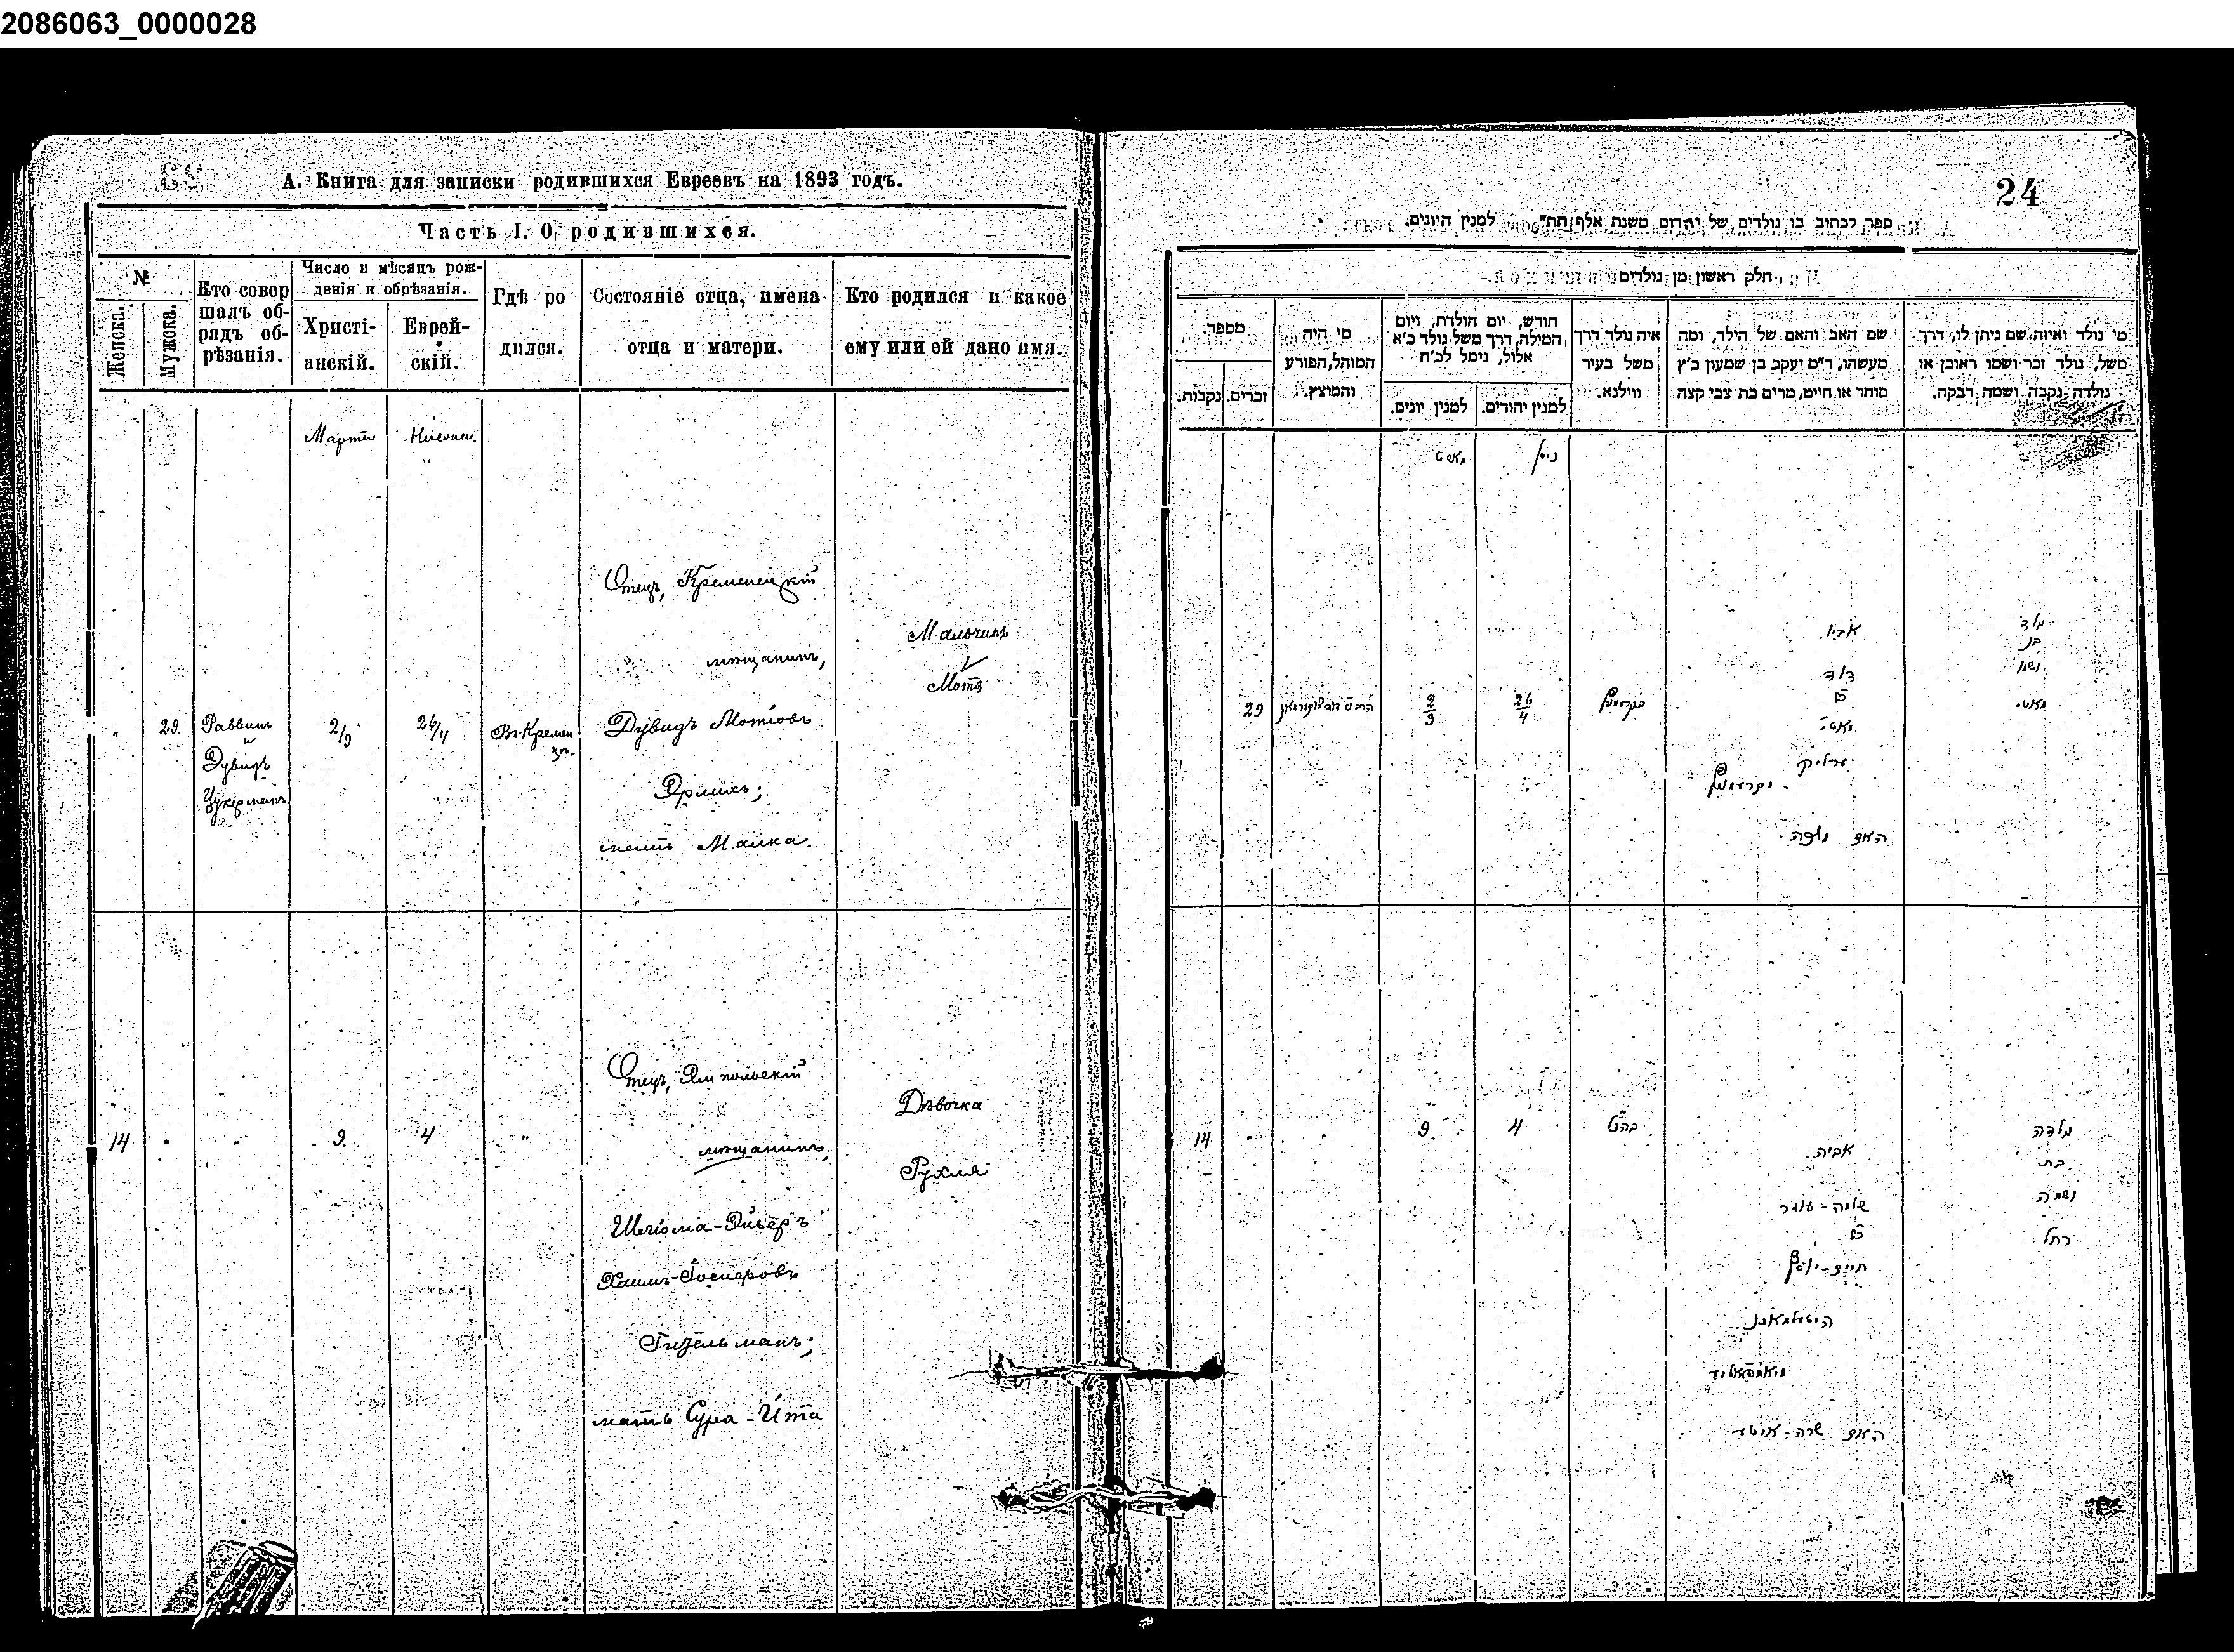 2086063_0000028
А. Книга для записки родившихся Евреевъ на 1893 годъ.
Часть I. О родившихся.
№
Женска.
Мужска.
Кто совер
шалъ об-
рядъ об-
рѣзанія.
Число и мѣсяцъ рож-
денія и обрѣзанія.
Христі-
анскій.
Еврей-
скій.
Гдѣ ро
дился.
Состояніе отца, имена
отца и матери.
Кто родился и какое
ему или ей дано имя.
Мартъ
29.
Раввинъ
Дувидъ
Цукерманъ
2/9
26/4
Въ Кремен
цѣ.
Отецъ, Кременецкій
мѣщанинъ,
Дувидъ Мотіовъ
Эрлихъ;
мать Малка.
Мальчикъ
Мотя
14
9.
4
"
Отецъ, Ямпольскій
мѣщанинъ,
Шліома-
Хаимъ-
мать Сура-Ита
Дѣвочка
Рухля
24
ספר לכתוב בו נולדים של יהדום משנת אלף תת" למנין היונים.
חלק ראשון מן נולדים
מספר.
זכרים.
נקבות.
מי היה
המוהל, הפורע
והמוצץ.
חודש, יום הולדת, ויום
המילה, דרך משל נולד כ'א
אלול, נימל לכ'ח
למנין יונים.
למנין יהודים.
איה נולד דרך
משל בעיר
ווילנא.
שם האב והאם של הילד, ומה
מעשהו, ד"מ יעקב בן שמעון כ"ץ
סוחר או חייט, מרים בת צבי קצה
מי נולד ואיזה שם ניתן לו, דרך
משל, נולד זכר ושמו ראובן או
נולדה נקבה ושמה רבקה.
ניסן
29
2/9
26/4
אביו
דוד
מאטי
ערליך
האם מלכה
נולד
בן
ושמו
מאטי
14
9
4
אביה
שלמה-
האם שרה-איטא
נולדה
בת
ושמה
רחל